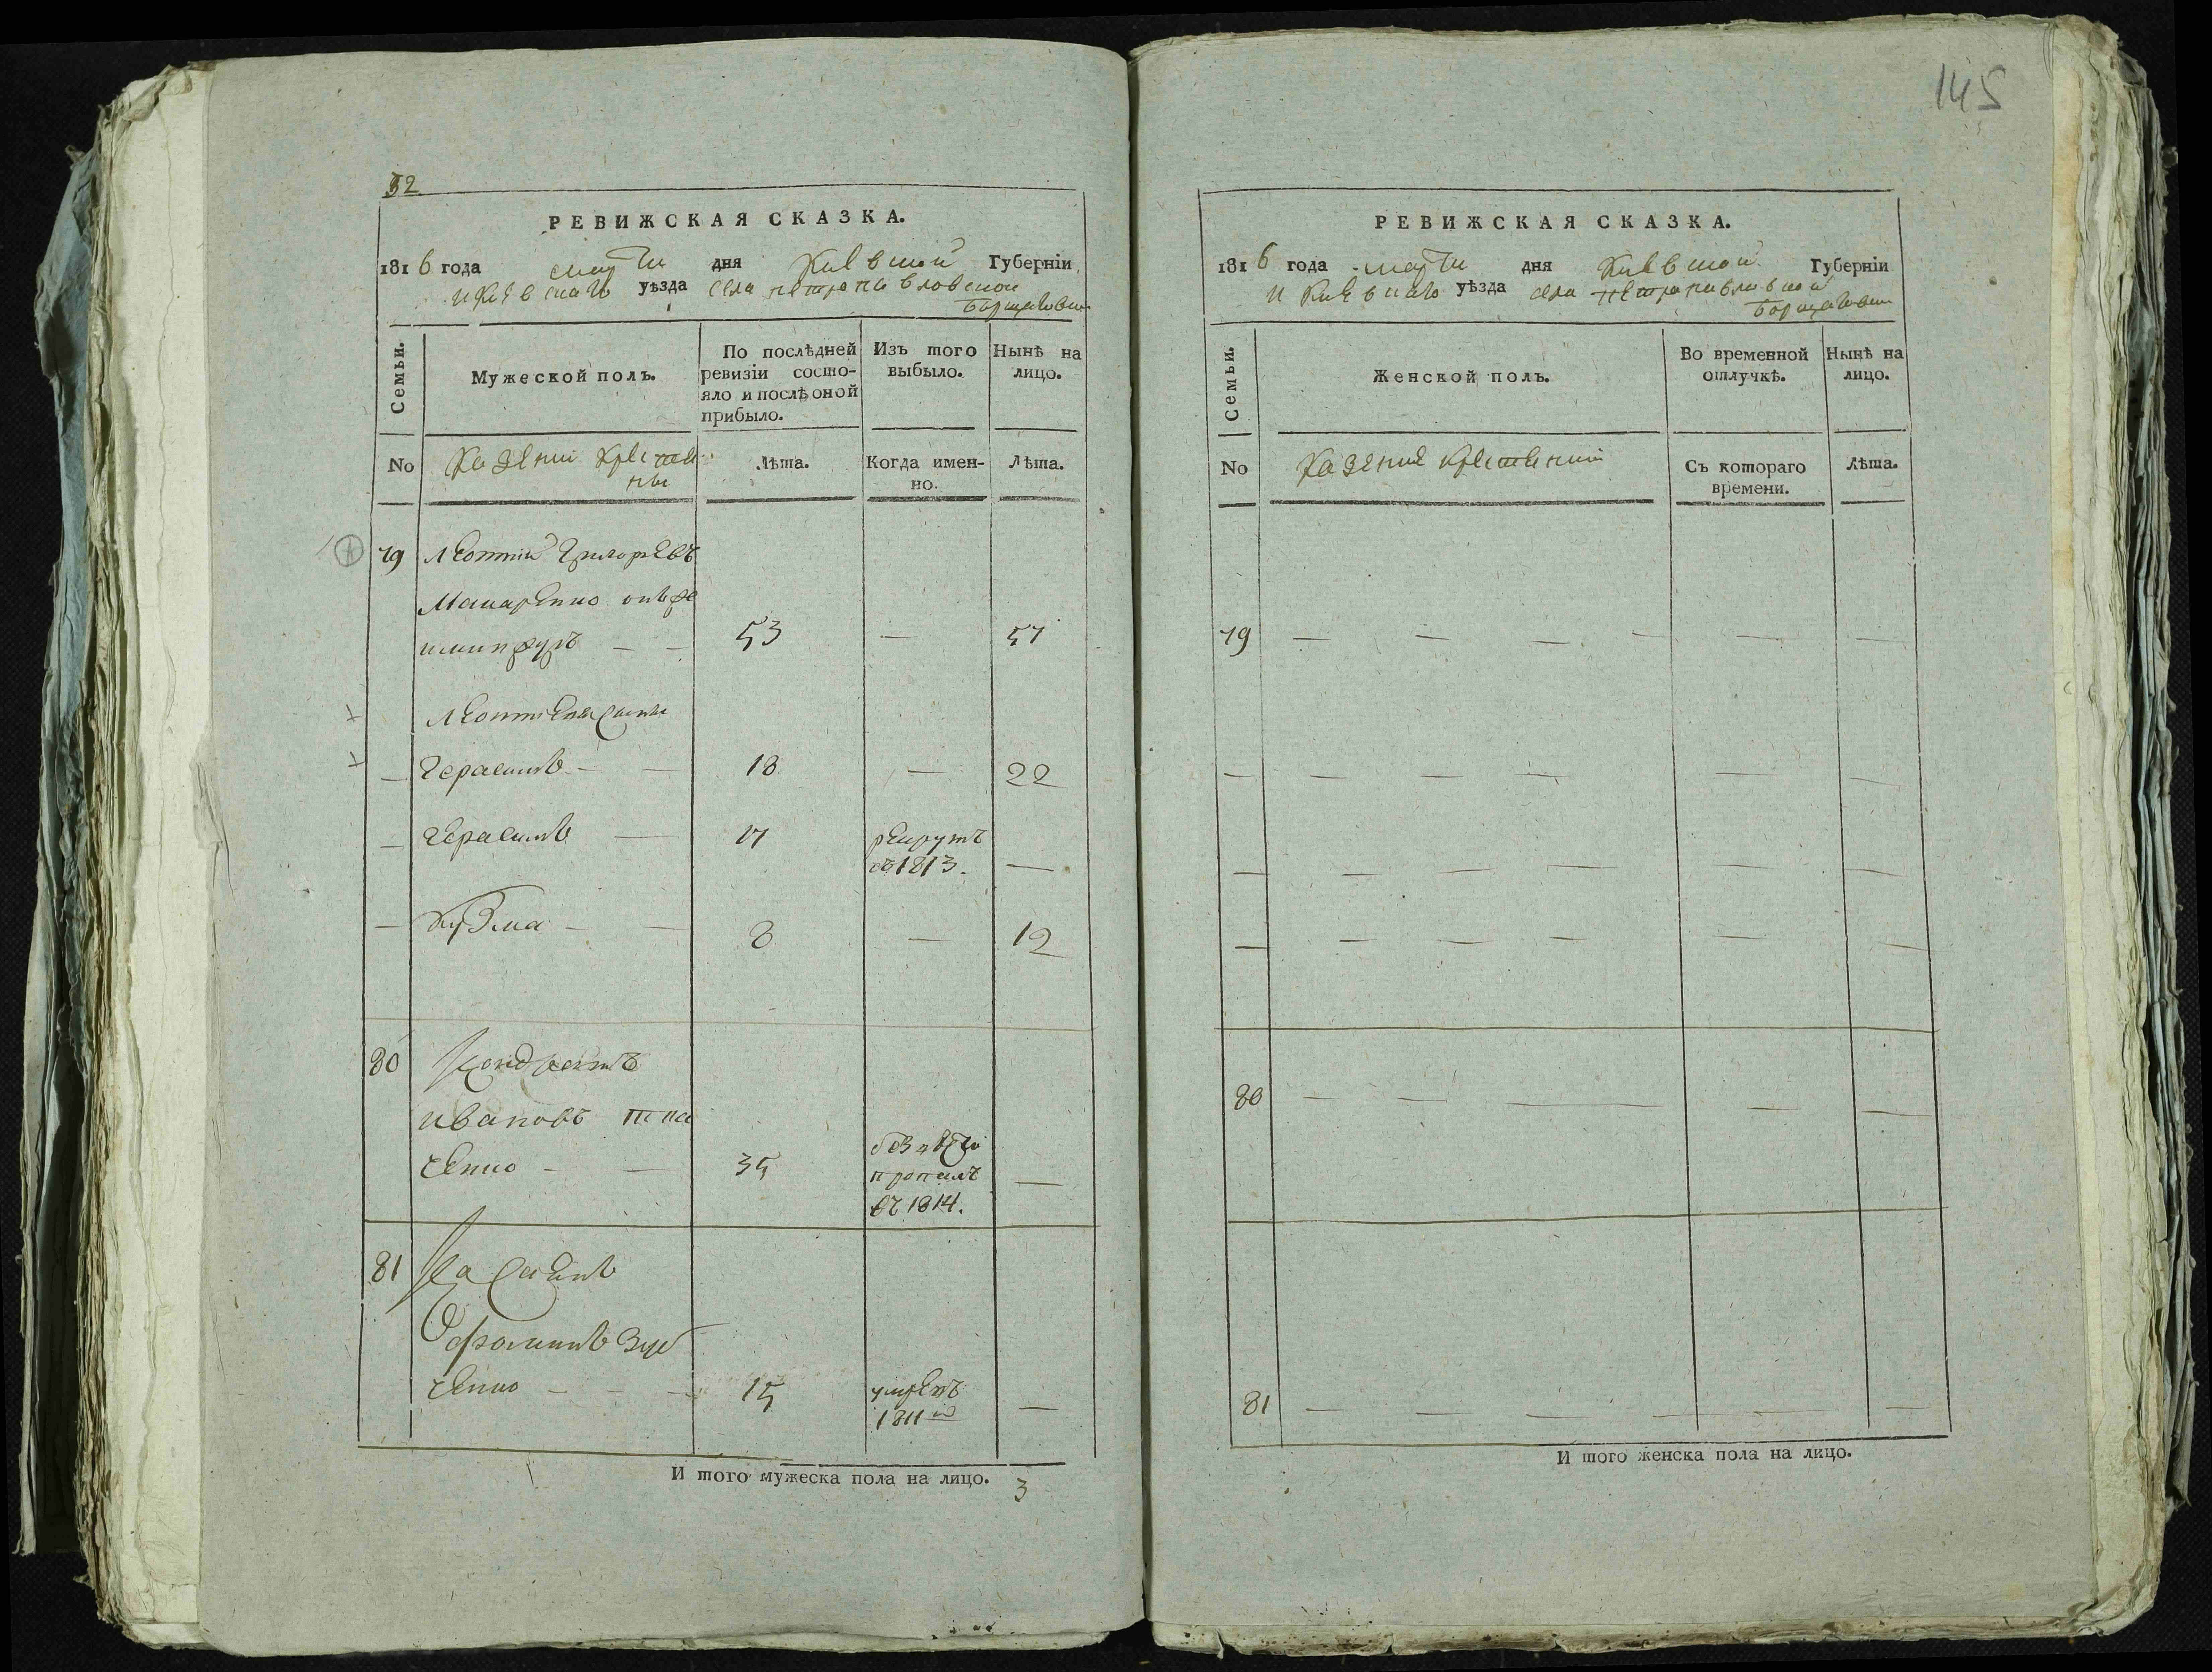 145
32
РЕВИЖСКАЯ СКАЗКА.
1816 года марта дня Киевской Губерніи
и Киевскаго уѣзда села петропавловской
Борщаговки
Семьи.
Мужеской полъ.
По послѣдней ревизіи состо-
яло и послѣ оной
прибыло.
Изъ того
выбыло.
Нынѣ на
лицо.
No
Казений крестя
ны
Лѣта.
Когда имен-
но.
Лѣта.
79 Леонтий Григорьевъ
Макаренко
53 — 57
Леонтиевы сыны
— Герасимъ — — 18 — 22
— Герасимъ — 17 рекрутъ
въ 1813. —
— Кузма — — 8 — 12
80 Кондратъ
Ивановъ тка
ченко — — 35 без вести
пропалъ
въ 1814. —
81 Касянъ
зуб
ченко — — — 15 умренъ
1811го —
И того мужеска пола на лицо. 3
РЕВИЖСКАЯ СКАЗКА.
1816 года марта дня Киевской Губерніи
и Киевскаго уѣзда села петропавловской
Борщаговки
Семьи.
Женской полъ.
Во временной
отлучкѣ.
Нынѣ на
лицо.
No
Казение крестяний
Съ котораго
времени.
Лѣта.
79 — — — — — —
— — — — — —
— — — — — —
— — — — — —
80 — — — — —
81 — — — — — —
И того женска пола на лицо.